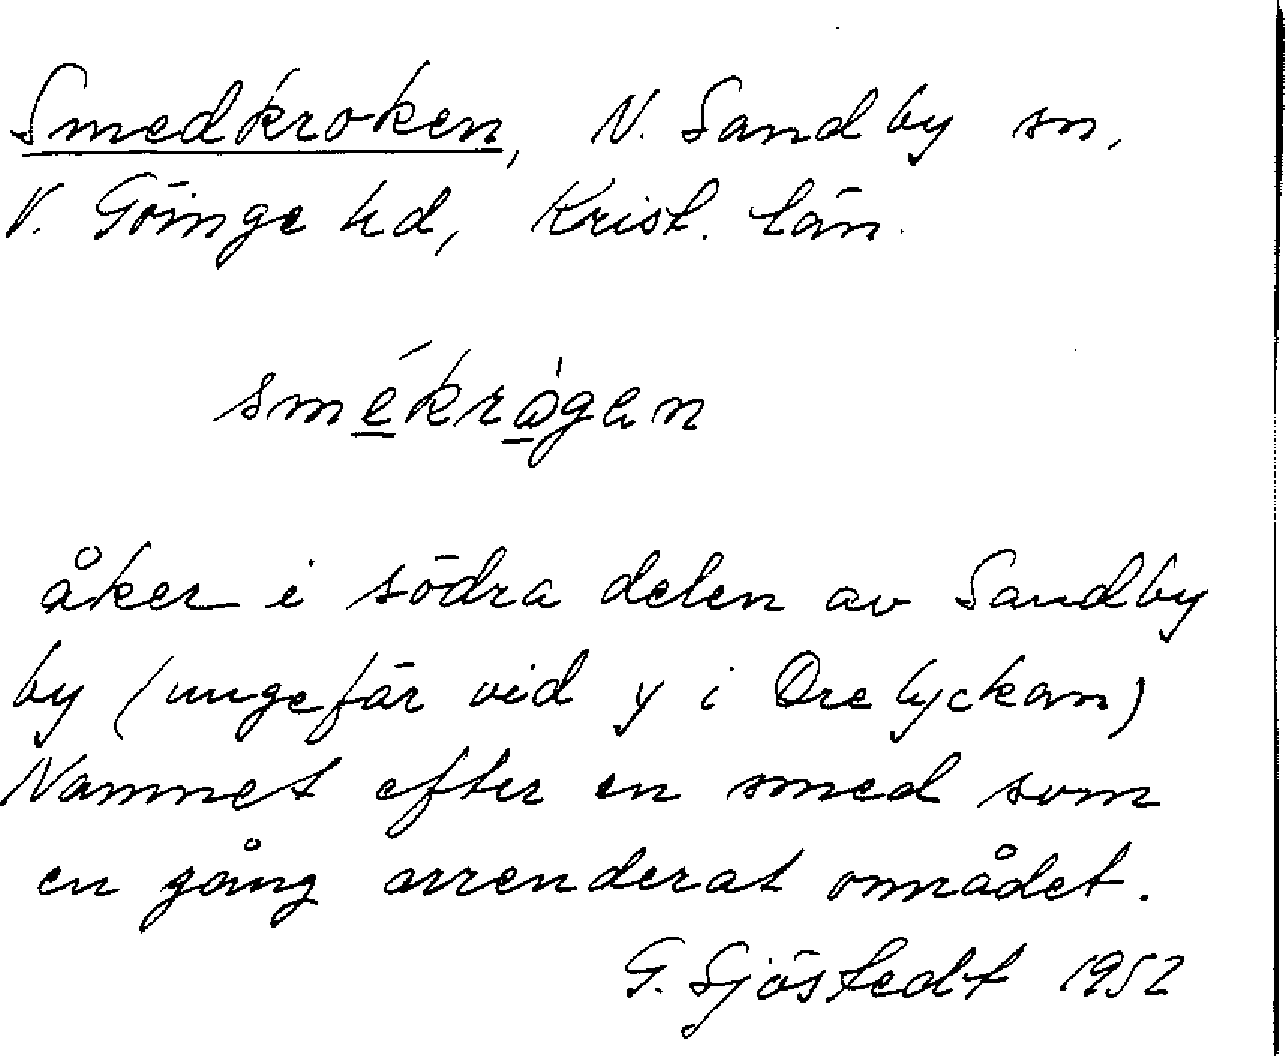 Smedkroken, N. Sandby sn,
V. Göinge hd, Krist. län.
smékrågan
åker i södra delen av Sandby
by (ungefär vid y i Ore lyckan)
Namnet efter en smed som
en gång arrenderat området.
G. Sjöstedt 1952